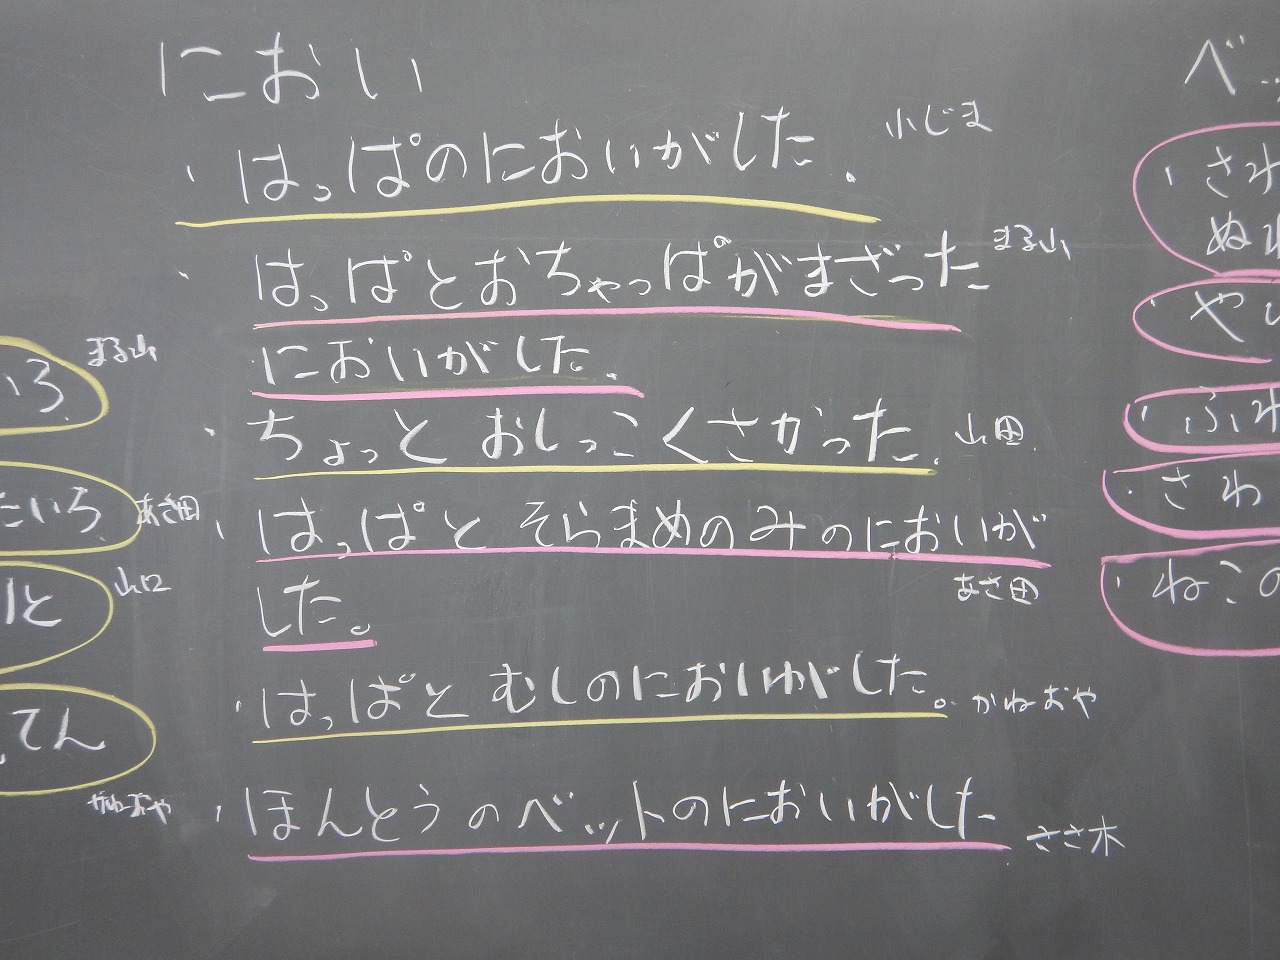 におい
・はっぱのにおいがした.
小じま
・はっぱとおちゃっぱがまざった
まる山
においがした.
・ちょっとおしっこくさかった.
山田
・はっぱとそらまめのみのにおいが
した。
あさ田
・はっぱとむしのにおいがした。
かねおや
・ほんとうのベットのにおいがした
ささ木
いろ
まる山
たいろ
あさ田
と
山口
てん
かねおや
ベッ
・さわ
ぬれ
・や
・ふわ
・さわ
・ねこの